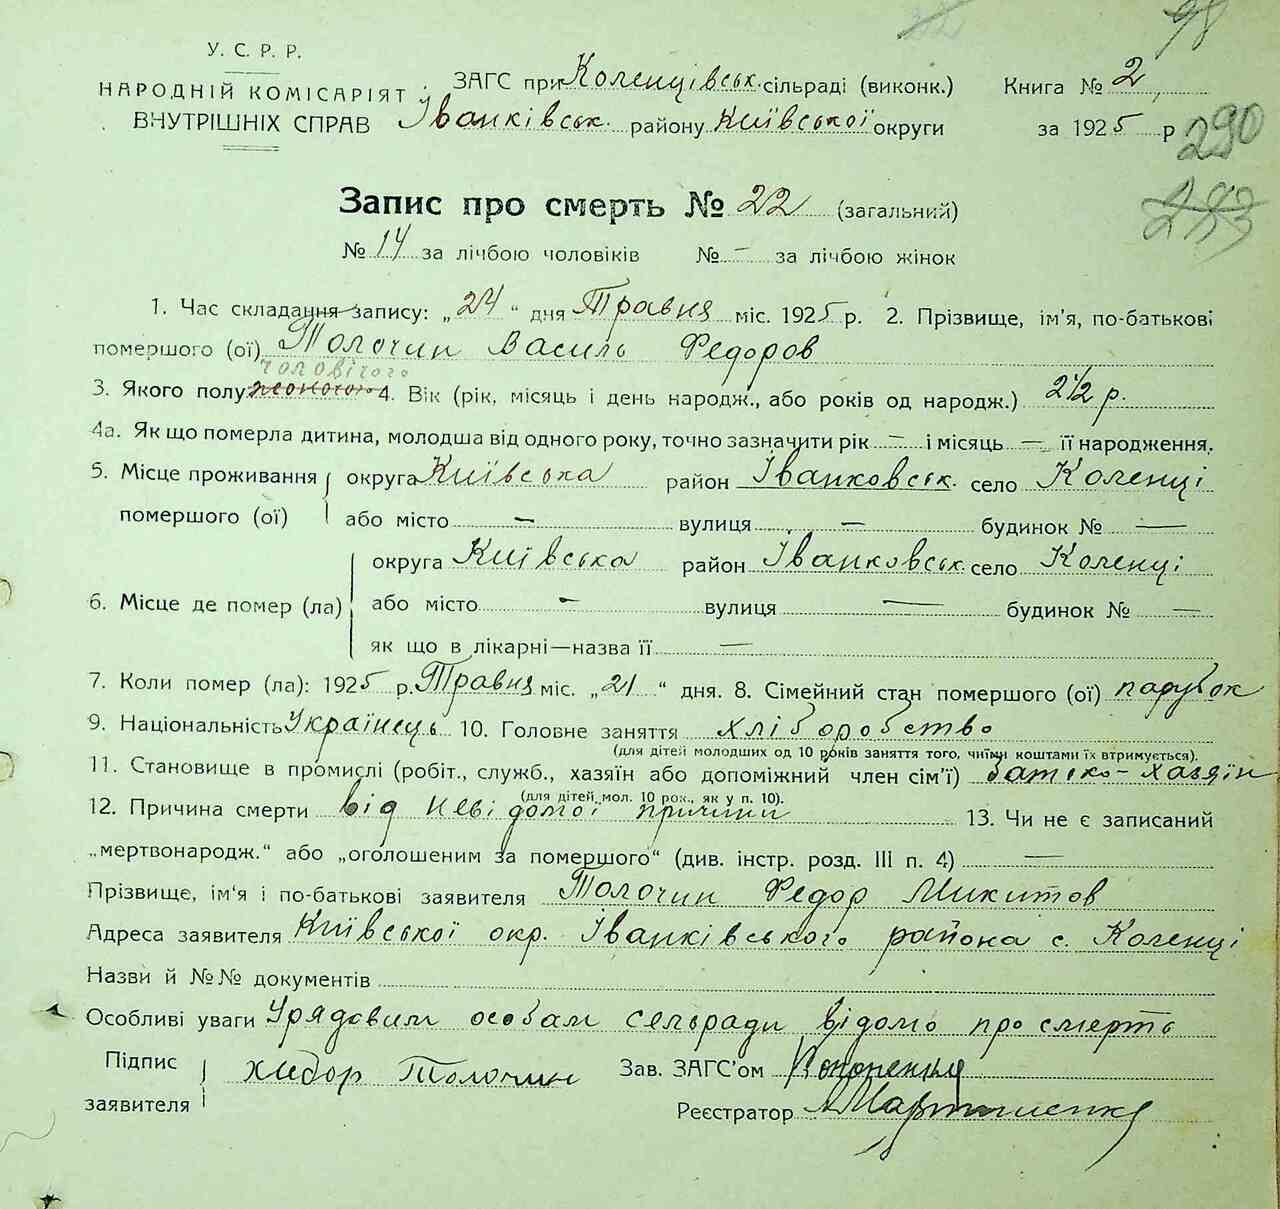 98
У. С. Р. Р.
НАРОДНІЙ КОМІСАРІЯТ
ВНУТРІШНІХ СПРАВ
ЗАГС при Коленцівськ. сільраді (виконк.)
Іванківськ. району Київської округи
Книга № 2
за 1925 р
290
Запис про смерть № 22 (загальний)
№ 14 за лічбою чоловіків № – за лічбою жінок
1. Час складання запису: „24“ дня Травня міс. 1925 р. 2. Прізвище, ім'я, по-батькові
помершого (ої) Толочин Василь Федоров
чоловічого
3. Якого полу 4. Вік (рік, місяць і день народж., або років од народж.) 2½ р.
4а. Як що померла дитина, молодша від одного року, точно зазначити рік — і місяць — її народження.
5. Місце проживання округа Київська район Іванковськ. село Коленці
помершого (ої) або місто — вулиця — будинок № —
округа Київська район Іванковськ. село Коленці
6. Місце де помер (ла) або місто – вулиця — будинок № —
як що в лікарні—назва її —
7. Коли помер (ла): 1925 р. Травня міс. „21“ дня. 8. Сімейний стан помершого (ої) парубок
9. Національність Українець 10. Головне заняття хліборобство
(для дітей молодших од 10 років заняття того, чиїми коштами їх втримується).
11. Становище в промислі (робіт., служб., хазяїн або допоміжний член сім'ї) батько-хазяїн
(для дітей мол. 10 рок., як у п. 10).
12. Причина смерти від невідомої причини 13. Чи не є записаний
„мертвонародж.“ або „оголошеним за помершого“ (див. інстр. розд. III п. 4) —
Прізвище, ім'я і по-батькові заявителя Толочин Федор Микитов
Адреса заявителя Київської окр. Іванківського района с. Коленці
Назви й №№ документів
Особливі уваги Урядовим особам сельради відомо про смерть
Підпис заявителя Хведор Толочин
Зав. ЗАГС'ом
Реєстратор